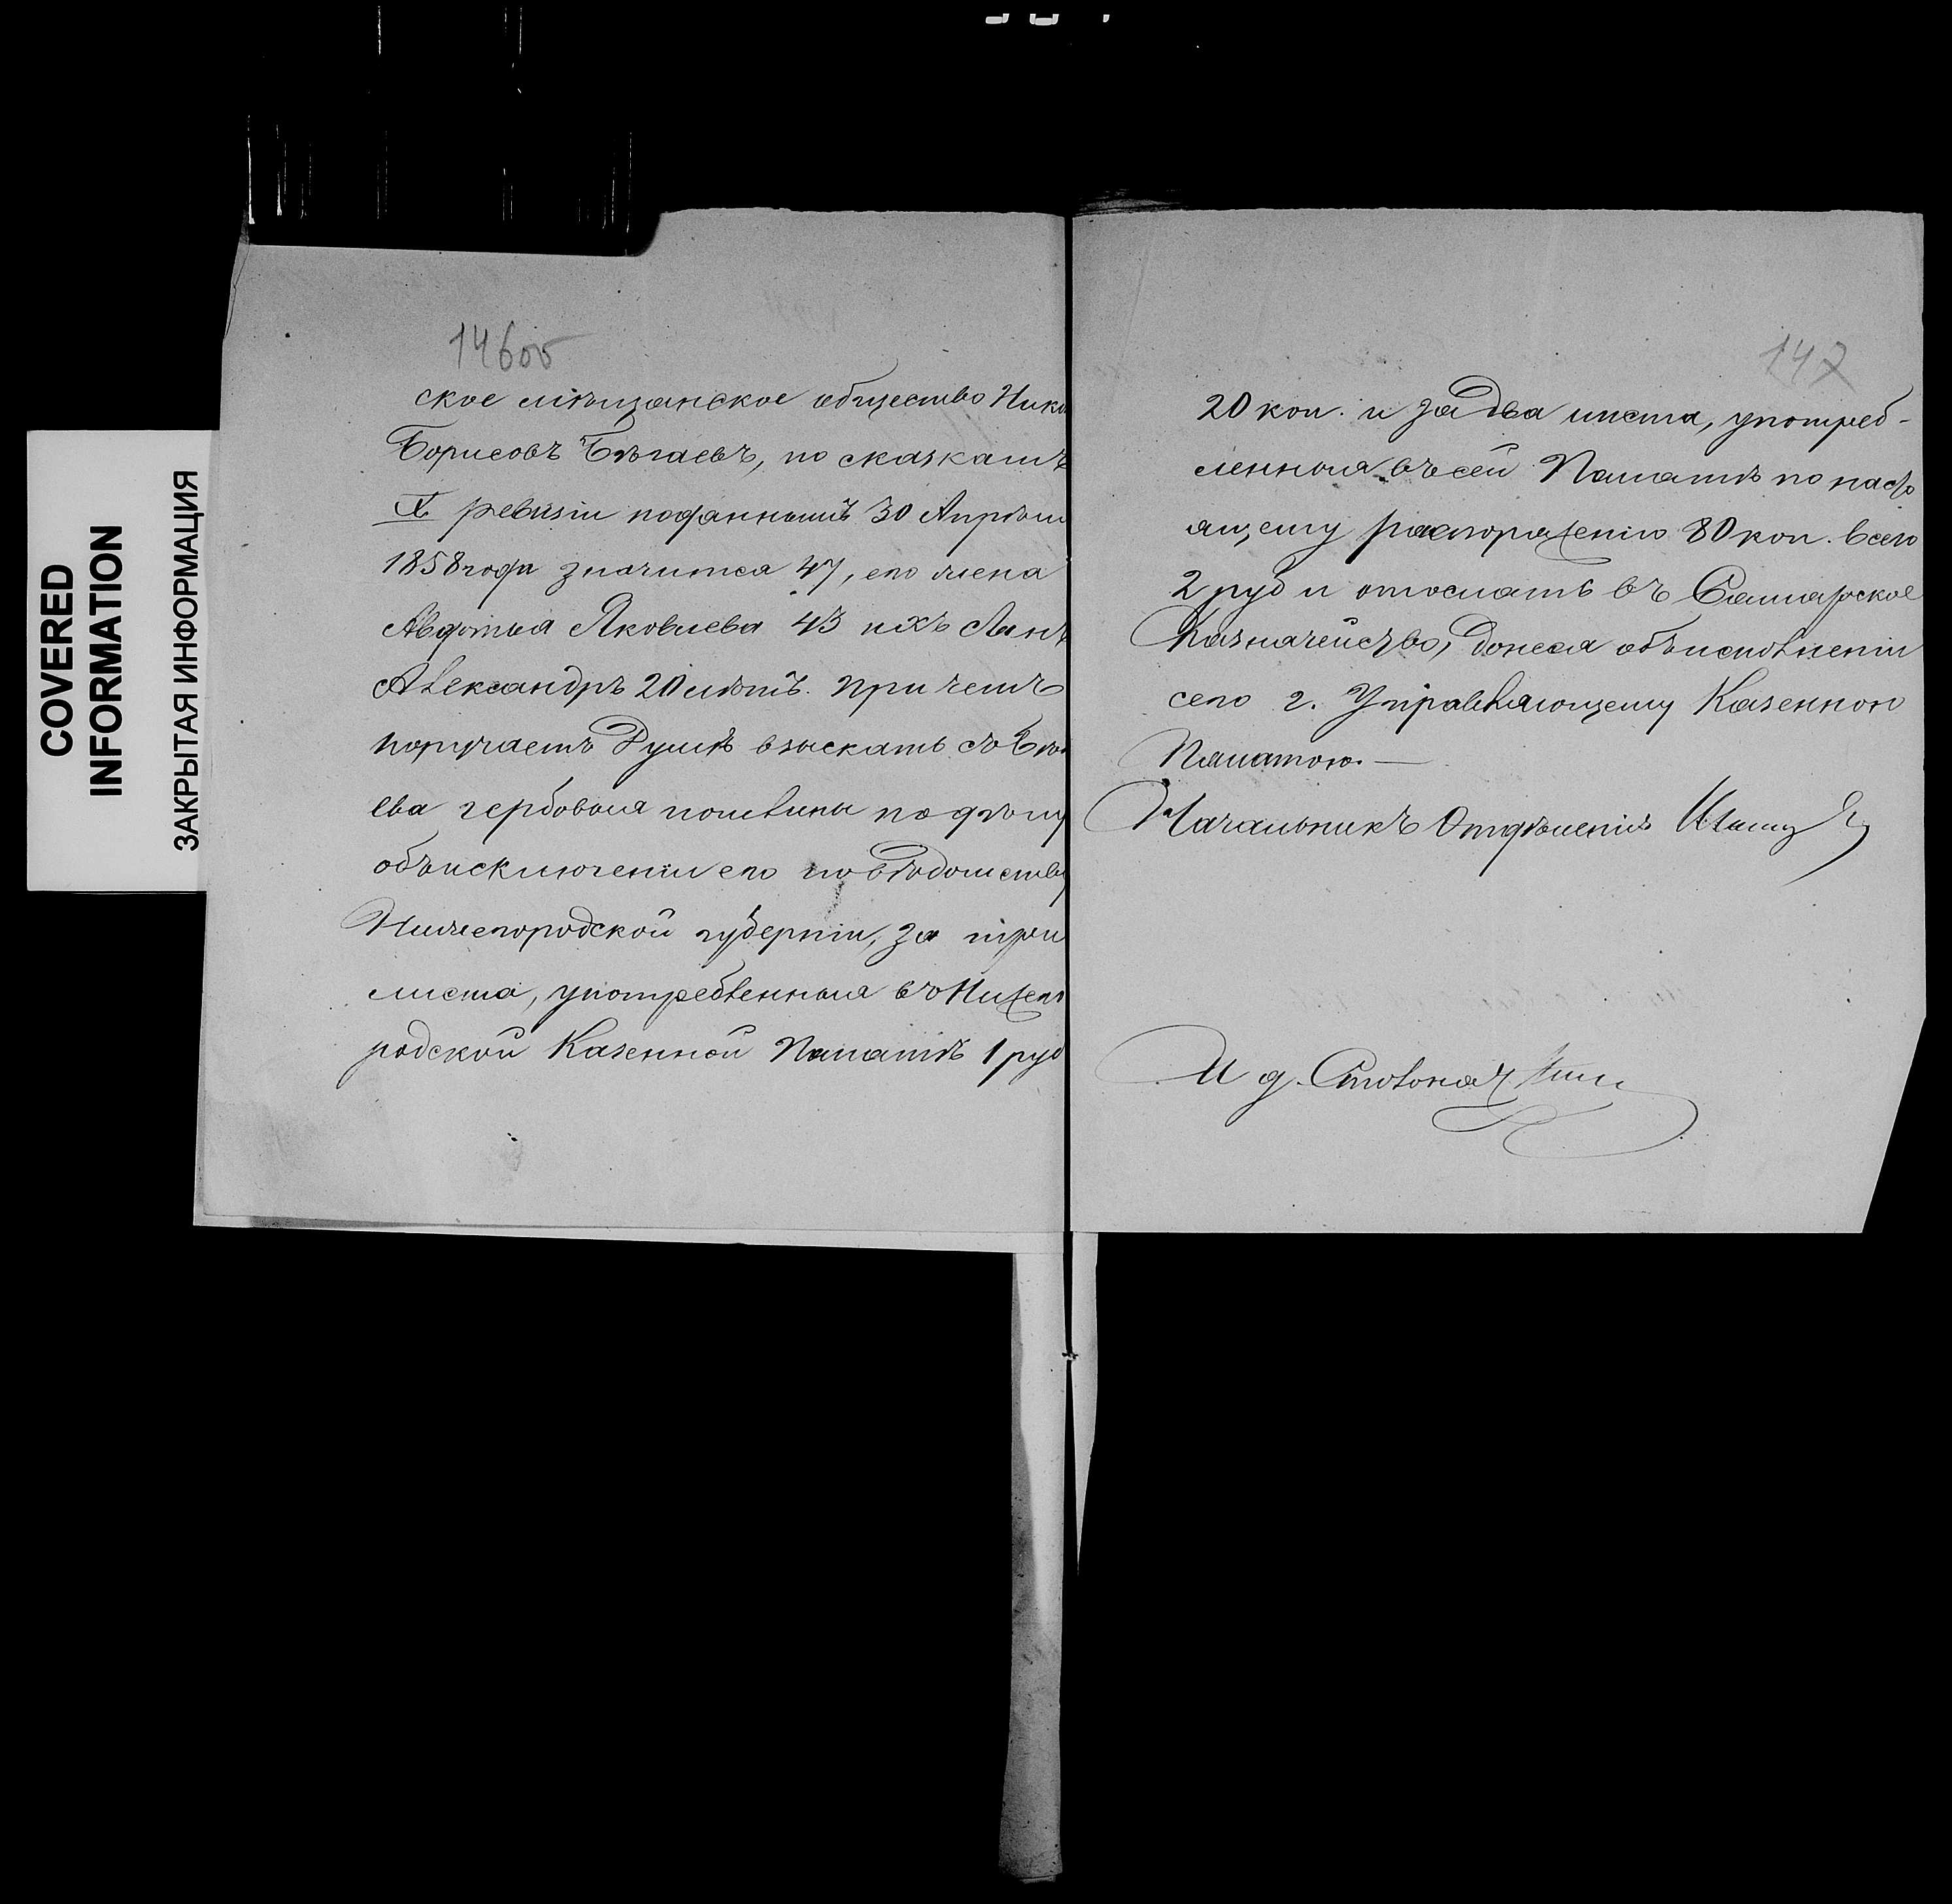 COVERED
INFORMATION
ЗАКРЫТАЯ ИНФОРМАЦИЯ
146об
ское мѣщанское общество Нико
Борисовъ Бѣгаевъ, по сказкамъ
X ревизіи поданнымъ 30 Апрѣля
1858 года значится 47, его жена
Авдотья Яковлева 43 ихъ сынъ
Александръ 20 лѣтъ. При чемъ
поручаетъ Думѣ взыскать съ Бѣга
ева гербовыя пошлины по дѣлу
объ исключеніи его по вѣдомству
Нижегородской губерніи, за три
листа, употребленныя въ Нижего
родской Казенной Палатѣ 1 руб
147
20 коп. и за два листа, употреб-
ленныя въ сей Палатѣ по насто
ящему распоряженію 80 коп. всего
2 руб и отослать въ Самарское
Казначейство, донеся объ исполненіи
сего г. Управляющему Казенною
Палатою.—
Начальникъ Отдѣленія
И д. Столонач